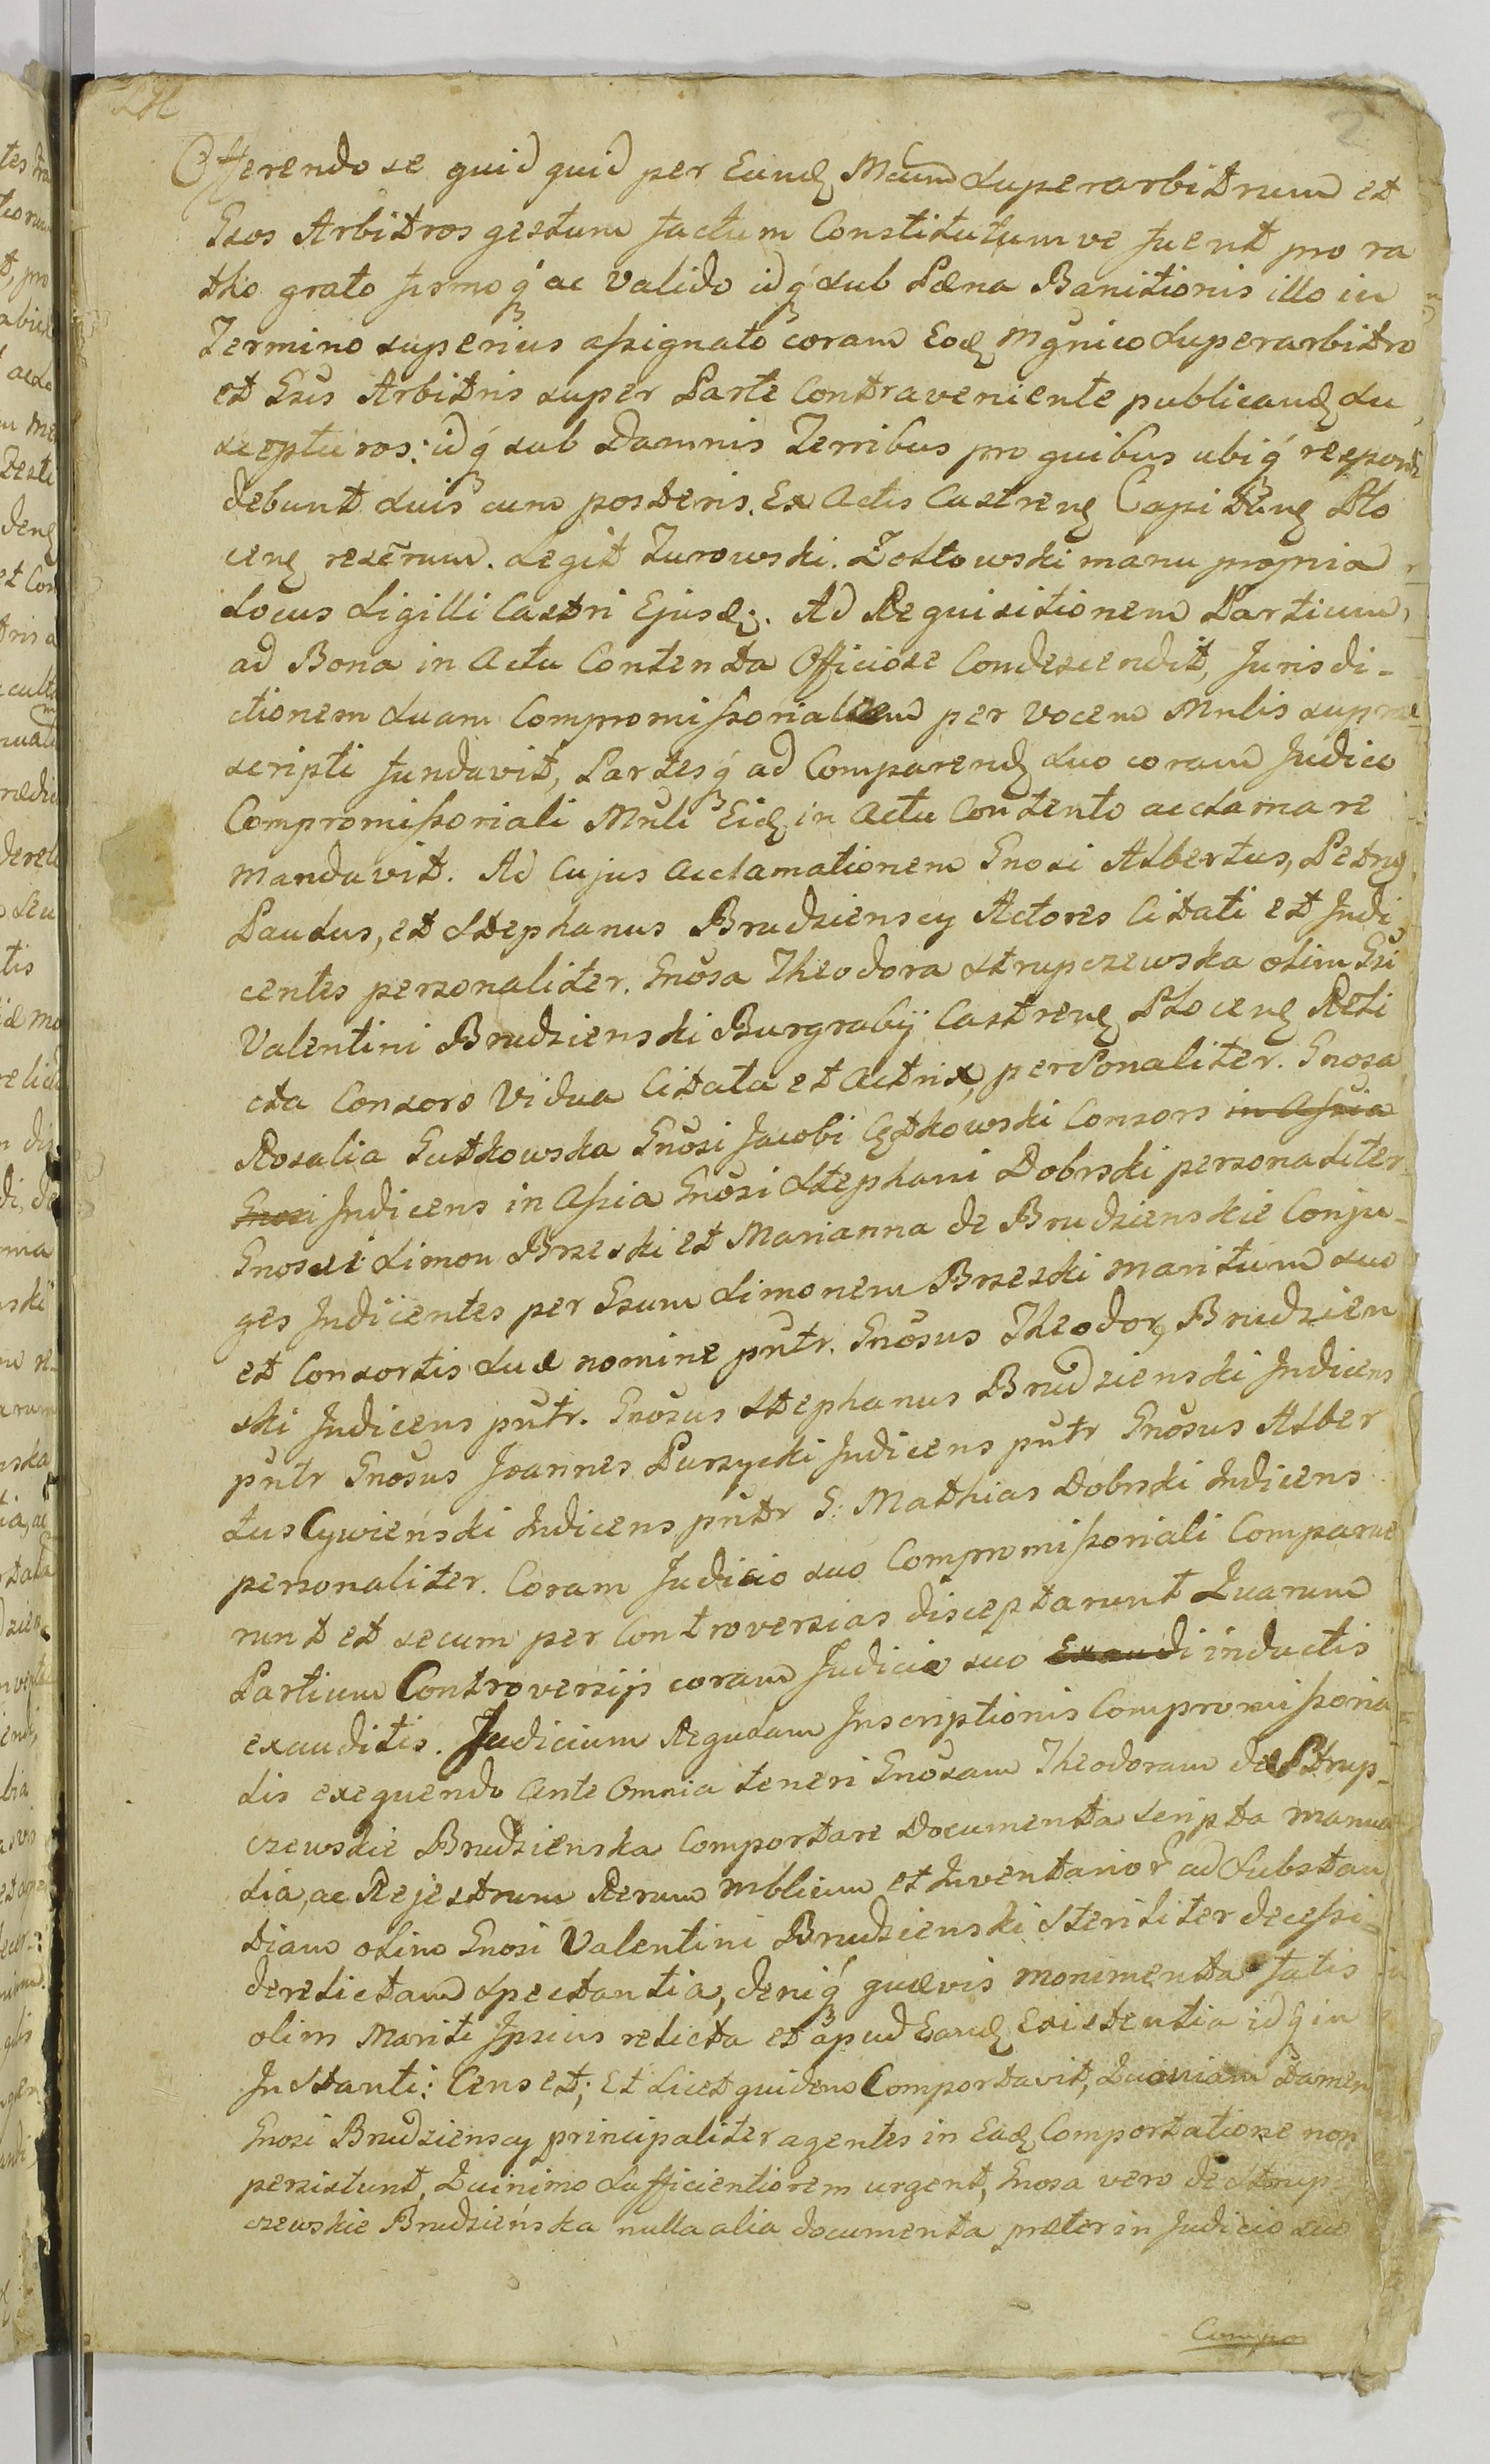 2
Offerendo se quid quid per Eund. Mcum Superarbitrum et
Gsos Arbitros gestum factum Constitutumve fuerit pro ra
tho grato firmoq́ ac valido idq́ sub Pæna Banitionis illo in
Termino superius aſsignato coram Eod. Mgnico Superarbitro
et Gsis Arbitris super Parte Contraveniente publicand. su
scepturos: idq́ sub Damnis Terribus pro quibus ubiq́ respon
debunt suis cum posteris. Ex Actis Castren. Capitan. Plo
cen. resērum. Legit Turowski. Zołtowski manu propria
Locus Sigilli Castri Ejusd. Ad Requisitionem Partium,
ad Bona in Actu Contenta Officiose Condescendit, Jurisdi-
ctionem suam Compromiſsorialem per vocem Mnlis supra
scripti fundavit, Partesq́ ad Comparend. suo coram Judico
Compromiſsoriali Mnli Eid. in Actu Contento acclamare
mandavit. Ad Cujus acclamationem Gnosi Albertus, Petrus
Paulus, et Stephanus Brudzienscy Actores Citati et Judi
centes personaliter. Gnosa Theodora Strupczewska olim Gsi
Valentini Brudzienski Burgrabij Castren. Plocen. Reli
cta Consors Vidua Citata et Actrix, personaliter. Gnosa
Rosalia Gutkowska Gnosi Jacobi Gętkowski Consors in Aſsia
Gnosi Indicens in Aſsia Gnosi Stephani Dobrski personaliter
Gnosi Simon Brzeski et Marianna de Brudzienskie Conju-
ges Indicentes per Gsum Simonem Brzeski maritum suo
et Consortis suæ nomine pntr. Gnosus Theodorg Brudzien
ski Indicens pntr. Gnosus Stephanus Brudzienski Indicens
pntr Gnosus Joannes Parzycki Indicens pntr Gnosus Alber
tus Cywieński Indicens pntr G: Mathias Dobrski Indicens
personaliter. Coram Judicio suo Compromiſsoriali Comparue
runt et secum per Controversias disceptarunt Quarum
Partium Controversijs coram Judicio suo Exaudi inductis
exauditis. Judicium Regulam Inscriptionis Compromiſsoria
lis exequendo Ante Omnia teneri Gnosam Theodoram de Strup-
czewskie Brudzienska Comportare Documenta Scripta manua
lia, ac Rejestrum Rerum mblium et Inventarior ad Substan
tiam olim Gnosi Valentini Brudzienski Steriliter deceſsi
derelictam spectantia, deniq́ quævis monimenta fatis
olim Mariti Ipsius relicta et apud Eand. Existentia idq́ in
Instanti: Censet; Et licet quidem Comportavit, Quoniam tamen
Gnosi Brudzienscy principaliter agentes in Ead. Comportatione non
persistunt, Quinimo Sufficientiorem urgent, Gnosa vero de Strup
czewskie Brudzieńska nulla alia documenta præter in Judicio suo
Compor